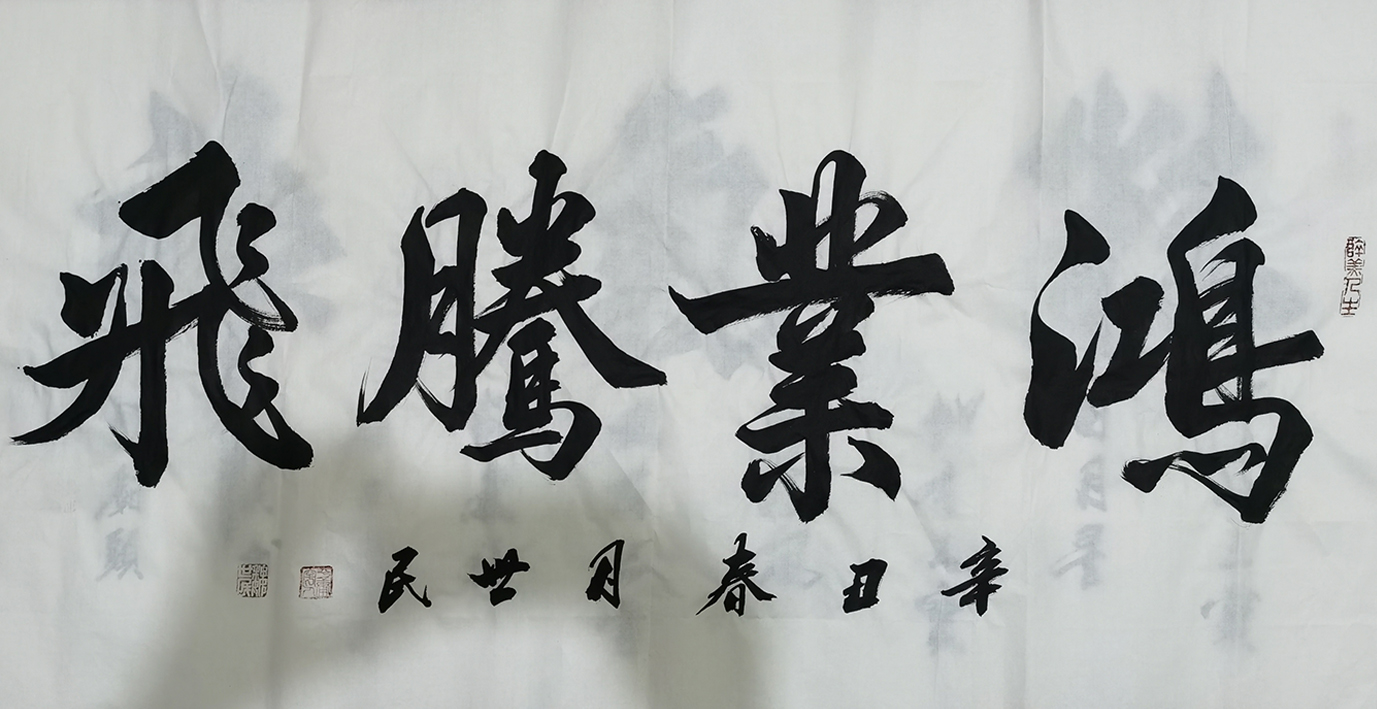 鴻業騰飛
辛丑春月世民